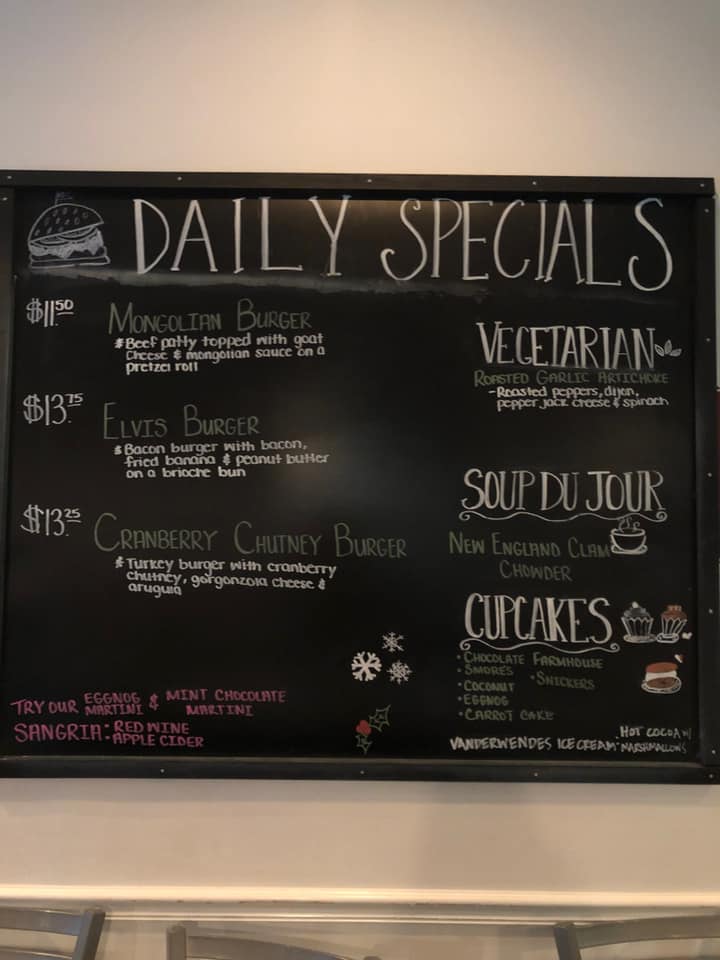 DAILY SPECIALS
$11.50 MONGOLIAN BURGER
*Beef patty topped with goat
cheese & mongolian sauce on a
pretzel roll
$13.75 ELVIS BURGER
*Bacon burger with bacon,
fried banana & peanut butter
on a brioche bun
$13.25 CRANBERRY CHUTNEY BURGER
*Turkey burger with cranberry
chutney, gorgonzola cheese &
arugula
TRY OUR EGGNOG MARTINI & MINT CHOCOLATE MARTINI
SANGRIA: RED WINE
APPLE CIDER
VEGETARIAN
ROASTED GARLIC ARTICHOKE
-Roasted peppers, dijon,
pepper jack cheese & spinach
SOUP DU JOUR
NEW ENGLAND CLAM
CHOWDER
CUPCAKES
• CHOCOLATE FARMHOUSE
SMORES
• SNICKERS
• COCONUT
• EGGNOG
• CARROT CAKE
VANDERWENDES ICE CREAM
• HOT COCOA W/
MARSHMALLOWS